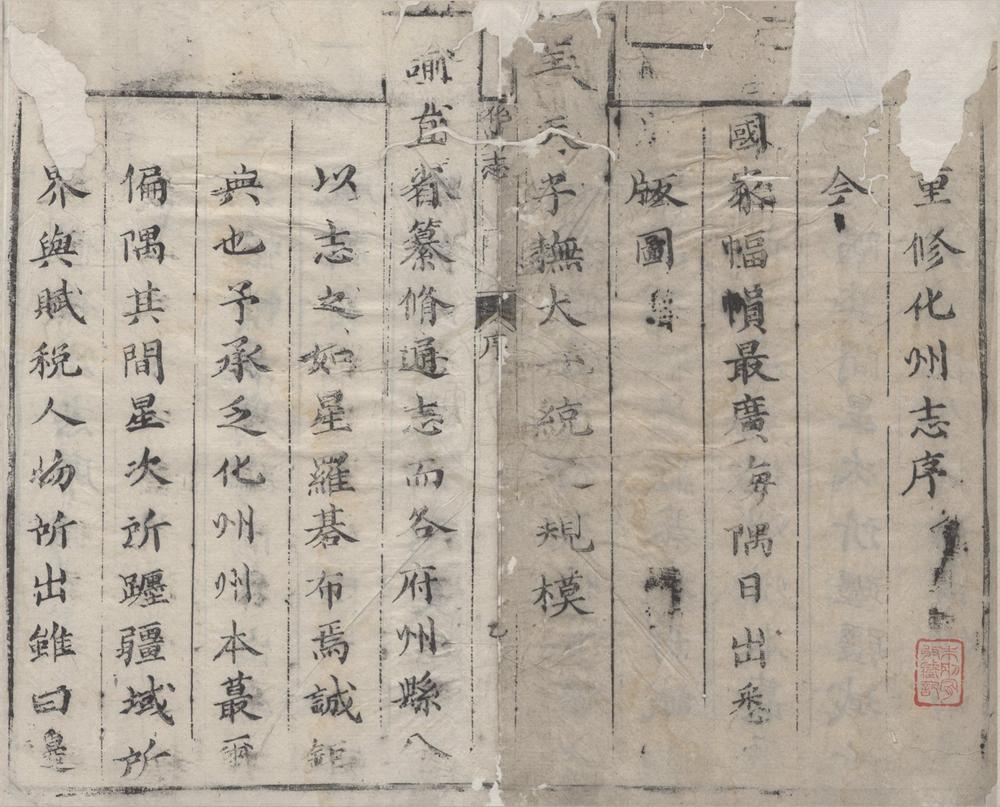 重修化州志序
今
國家幅幀最廣海隅日出悉
版圖
天子撫大一統之規模
諭直省纂脩通志而各府州縣
以志之如星羅碁布焉誠鉅
典也予承乏化州州本蕞爾
偏隅其間星次所躔疆域所
界與賦稅人物所出雖曰
化州志
序